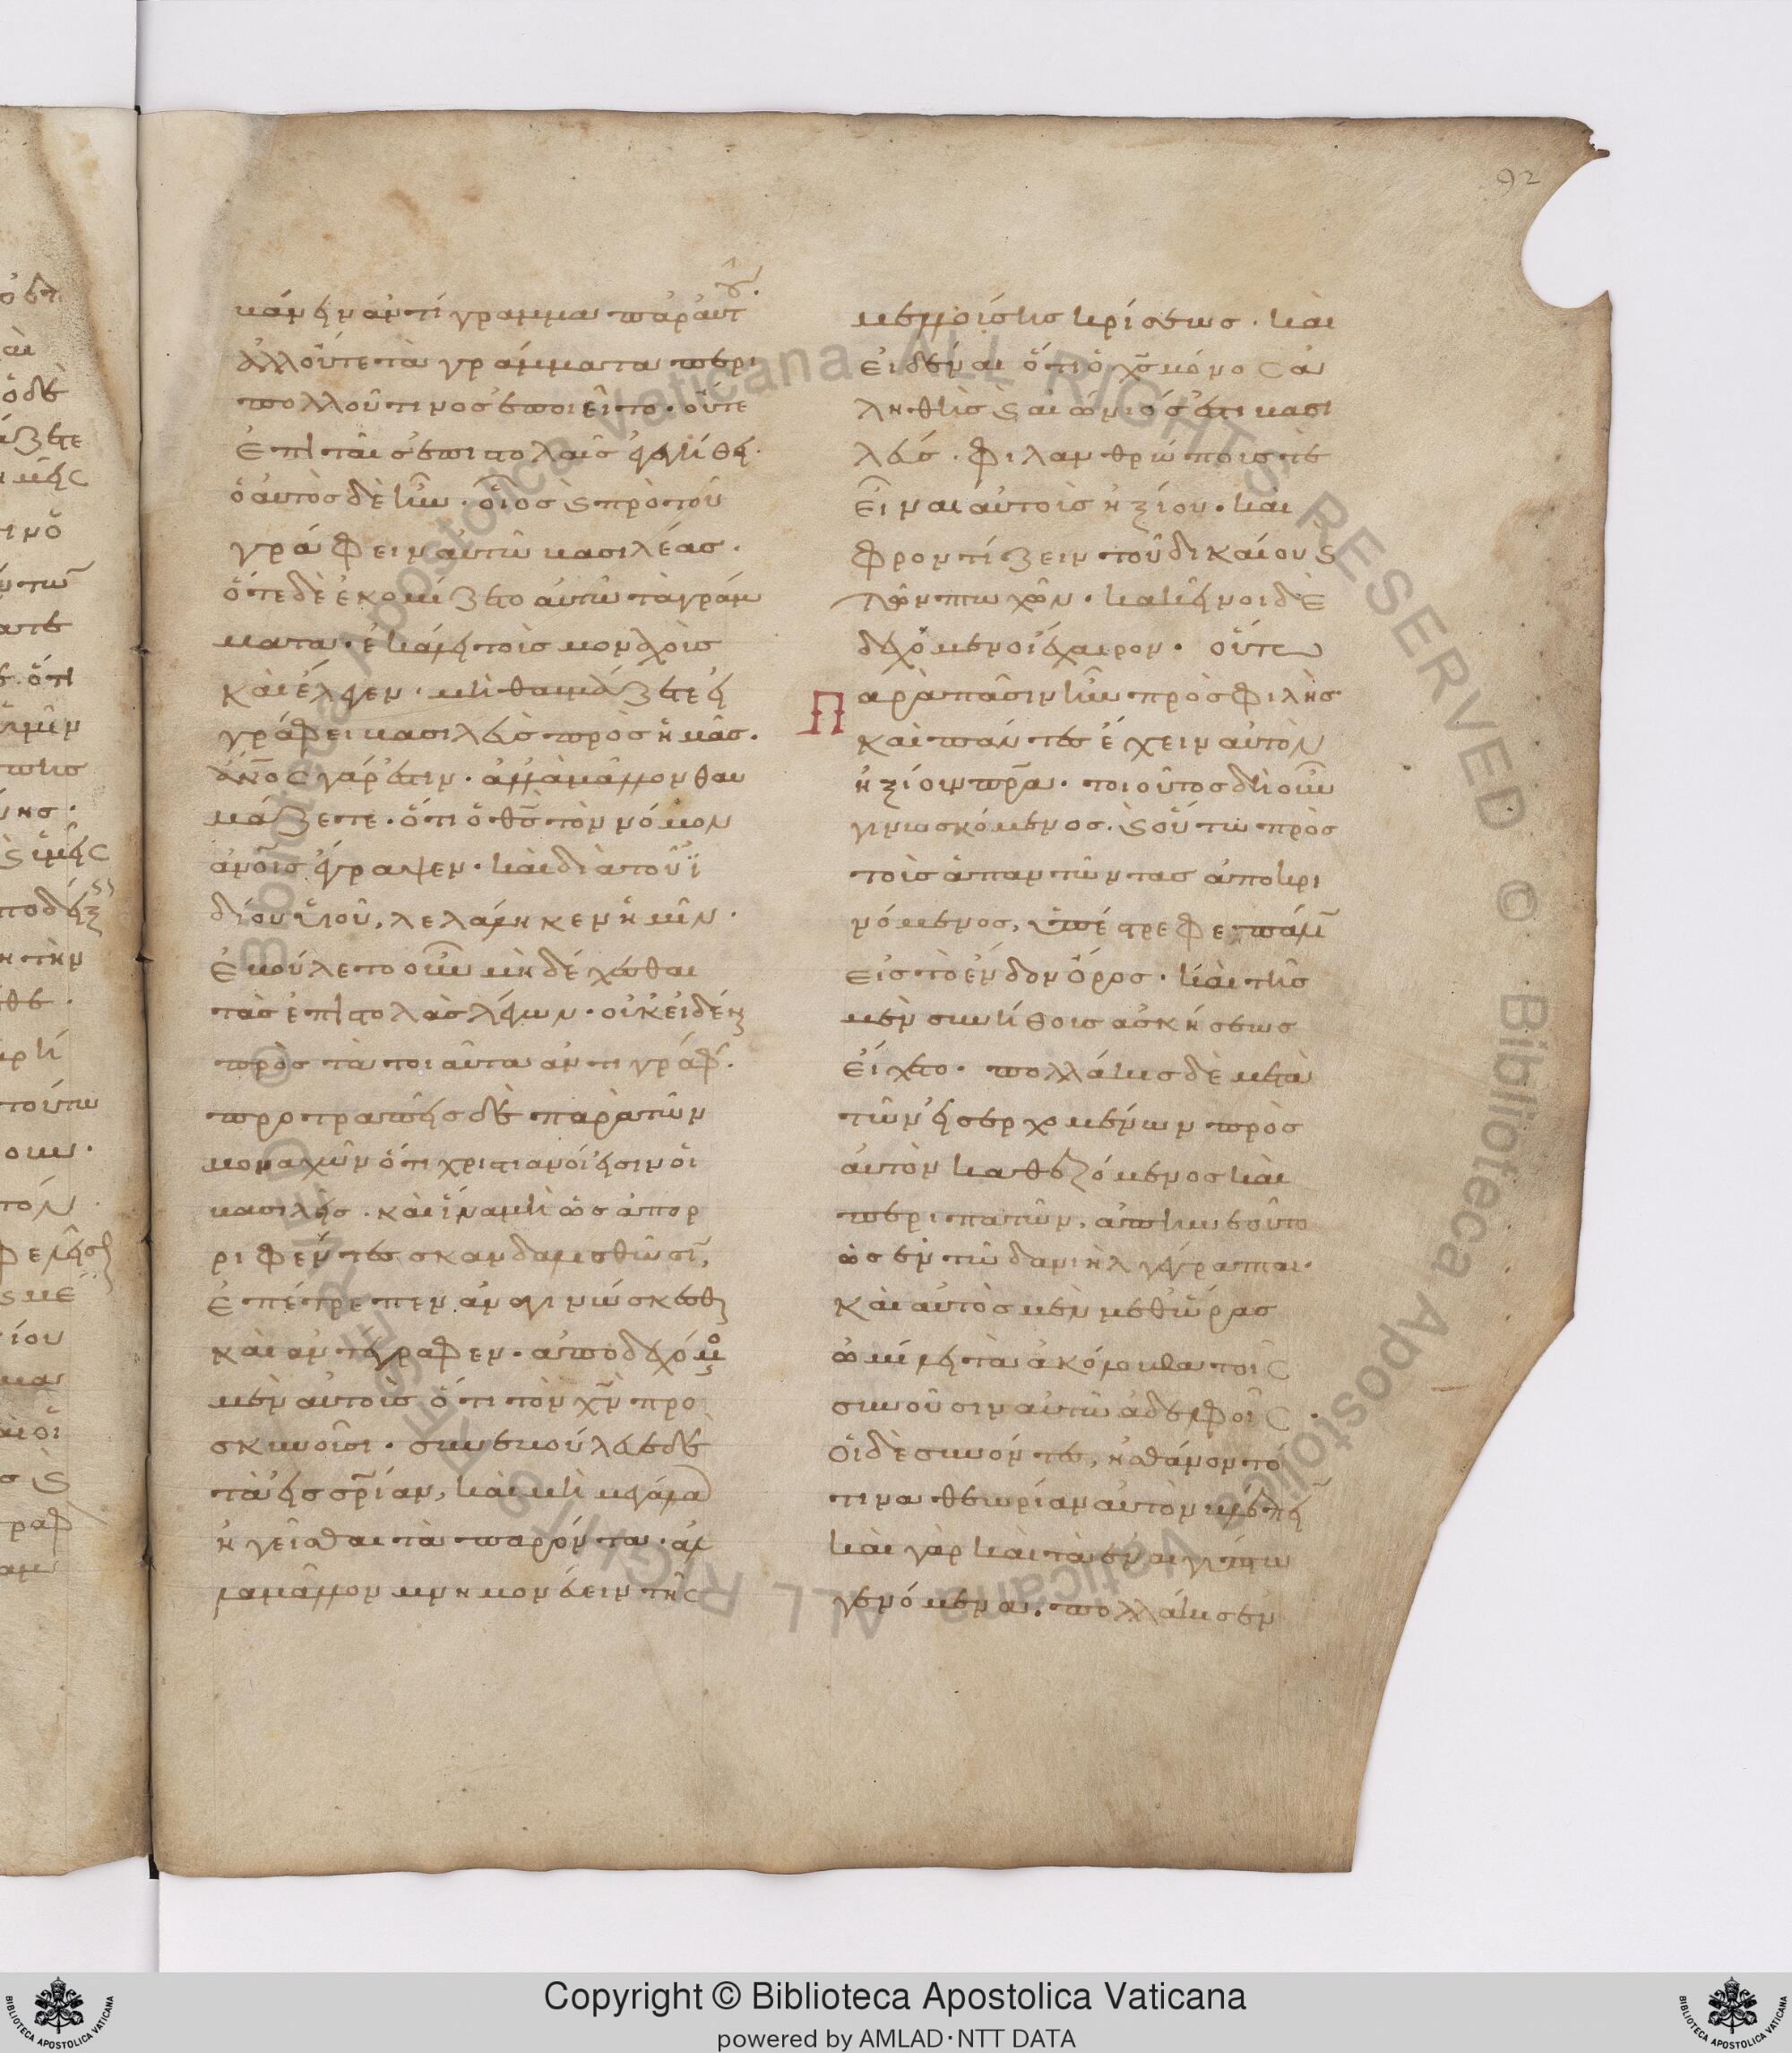 βάνειν ἀντίγραμμα παρ' αὐτοῦ.
ἀλλ' οὔτε τὰ γράμματα περὶ
πολλοῦ τινος ἐποιεῖτο· οὔτε
ἐπὶ ταῖς ἐπιστολαῖς
ὁ αὐτὸς δὲ ἦν· οἷος καὶ πρὸ τοῦ
γράφειν αὐτῷ βασιλέας.
ὅτε δὲ ἐκομίζετο αὐτῷ τὰ γράμ
ματα· ἐκάλει τοὺς μοναχοὺς
καὶ ἔλεγεν· μὴ θαυμάζετε εἰ
γράφει βασιλεὺς πρὸς ἡμᾶς.
ἄνος γάρ ἐστιν· ἀλλὰ μᾶλλον θαυ
μάζετε· ὅτι ὁ θς τὸν νόμον
ἀνοις ἔγραψεν· καὶ διὰ τοῦ ἰ
δίου υἱοῦ, λελάληκεν ἡμῖν·
ἐβούλετο οὖν μὴ δέχεσθαι
τὰς ἐπιστολὰς λέγων· οὐκ εἰδέναι
πρὸς τὰ τοιαῦτα ἀντιγράφειν·
προτραπεὶς δὲ παρὰ τῶν
μοναχῶν ὅτι χριστιανοί εἰσιν οἱ
βασιλεῖς· καὶ ἵνα μὴ ὡς ἀπορ
ριφέντες σκανδαλισθῶσιν,
ἐπέτρεπεν ἀναγινώσκεσθαι
καὶ ἀντέγραφεν· ἀποδεχόμενος
μὲν αὐτοὺς ὅτι τὸν χν προ
σκυνοῦσι· συνεβούλευε δὲ
τὰ εἰς σρίαν, καὶ μὴ μεγάλα
ἡγεῖσθαι τὰ παρόντα· ἀλ
λὰ μᾶλλον μνημονεύειν τῆς
92
μελλούσης κρίσεως· καὶ
εἰδέναι ὅτι ὁ χς μόνος ἀ
ληθὴς καὶ αἰώνιός ἐστι βασι
λεύς· φιλανθρώπους τε
εἶναι αὐτοὺς ἠξίου· καὶ
φροντίζειν τοῦ δικαίου καὶ
τῶν πτωχῶν· κακεῖνοι δὲ
δεχόμενοι ἔχαιρον· οὕτω
Παρὰ πᾶσιν ἦν προσφιλὴς
καὶ πάντες ἔχειν αὐτὸν
ἠξίουν πρα· τοιοῦτος δὴ οὖν
γινωσκόμενος· καὶ οὕτω πρὸς
τοὺς ἀπαντῶντας ἀποκρι
νόμενος, ὑπέστρεφε πάλιν
εἰς τὸ ἔνδον ὄρος· καὶ τῆς
μὲν συνήθους ἀσκήσεως
εἴχετο· πολλάκις δὲ μετὰ
τῶν εἰσερχομένων πρὸς
αὐτὸν καθεζόμενος καὶ
περιπατῶν, ἀπεκινεοῦτο
ὡς ἐν τῷ δανιὴλ γέγραπται·
καὶ αὐτὸς μὲν μεθ' ὥρας
ὡμίλει τὰ ἀκόλουθα τοῖς
συνοῦσιν αὐτῷ ἀδελφοῖς·
οἱ δὲ συνόντες, ᾐσθάνοντό
τινα θεωρίαν αὐτὸν βλέπειν
καὶ γὰρ καὶ τὰ ἐν αἰγύπτω
γενόμενα· πολλάκις ἐν
Copyright © Biblioteca Apostolica Vaticana
powered by AMLAD･NTT DATA